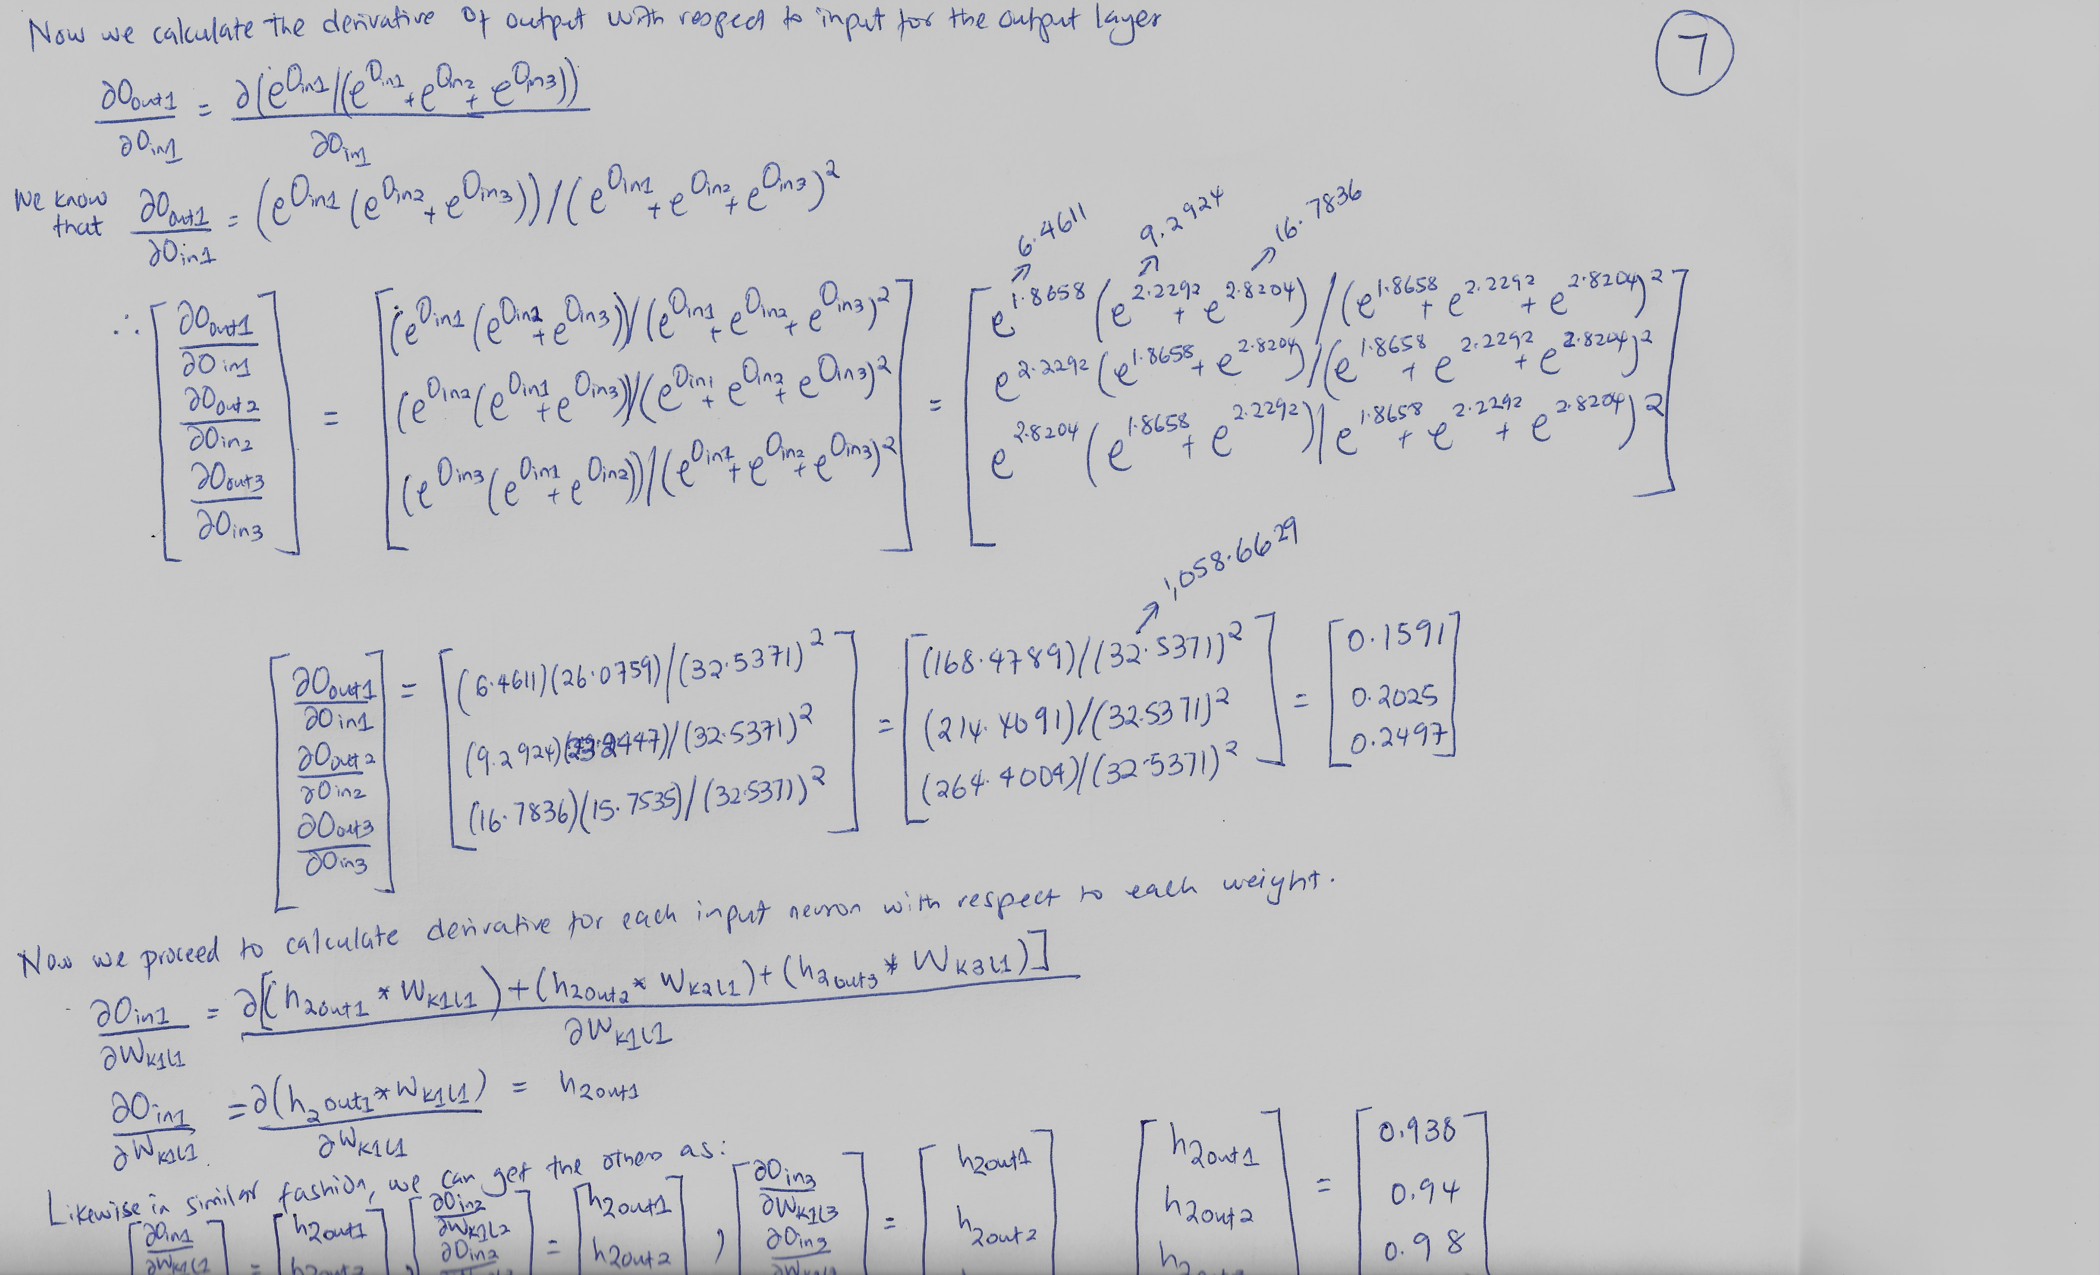 Now we calculate the derivative of output with respect to input for the output layer
7
∂Oout1/∂Oin1 = ∂(e^Oin1/(e^Oin1 + e^Oin2 + e^Oin3))/∂Oin1
We know that ∂Oout1/∂Oin1 = (e^Oin1 (e^Oin2 + e^Oin3))/(e^Oin1 + e^Oin2 + e^Oin3)^2
6.4611 9.2924 16.7836
∴ [∂Oout1/∂Oin1 ∂Oout2/∂Oin2 ∂Oout3/∂Oin3] =
[(e^Oin1 (e^Oin2 + e^Oin3))/(e^Oin1 + e^Oin2 + e^Oin3)^2
(e^Oin2 (e^Oin1 + e^Oin3))/(e^Oin1 + e^Oin2 + e^Oin3)^2
(e^Oin3 (e^Oin1 + e^Oin2))/(e^Oin1 + e^Oin2 + e^Oin3)^2] =
[e^1.8658 (e^2.2292 + e^2.8204)/(e^1.8658 + e^2.2292 + e^2.8204)^2
e^2.2292 (e^1.8658 + e^2.8204)/(e^1.8658 + e^2.2292 + e^2.8204)^2
e^2.8204 (e^1.8658 + e^2.2292)/(e^1.8658 + e^2.2292 + e^2.8204)^2]
1,058.6629
[∂Oout1/∂Oin1 ∂Oout2/∂Oin2 ∂Oout3/∂Oin3] =
[(6.4611)(26.0759)/(32.5371)^2
(9.2924)(23.2447)/(32.5371)^2
(16.7836)(15.7535)/(32.5371)^2] =
[(168.4789)/(32.5371)^2
(214.4091)/(32.5371)^2
(264.4004)/(32.5371)^2] =
[0.1591
0.2025
0.2497]
Now we proceed to calculate derivative for each input neuron with respect to each weight.
∂Oin1/∂WK1L1 = ∂[(h2out1 * WK1L1) + (h2out2 * WK2L1) + (h2out3 * WK3L1)]/∂WK1L1
∂Oin1/∂WK1L1 = ∂(h2out1 * WK1L1)/∂WK1L1 = h2out1
Likewise in similar fashion, we can get the others as:
[∂Oin1/∂WK1L1 = [h2out1
[∂Oin2/∂WK1L2 ∂Oin2 = [h2out1 h2out2 ,
[∂Oin3/∂WK1L3 ∂Oin3 = [h2out1 h2out2
[h2out1 h2out2 = [0.938 0.94 0.98